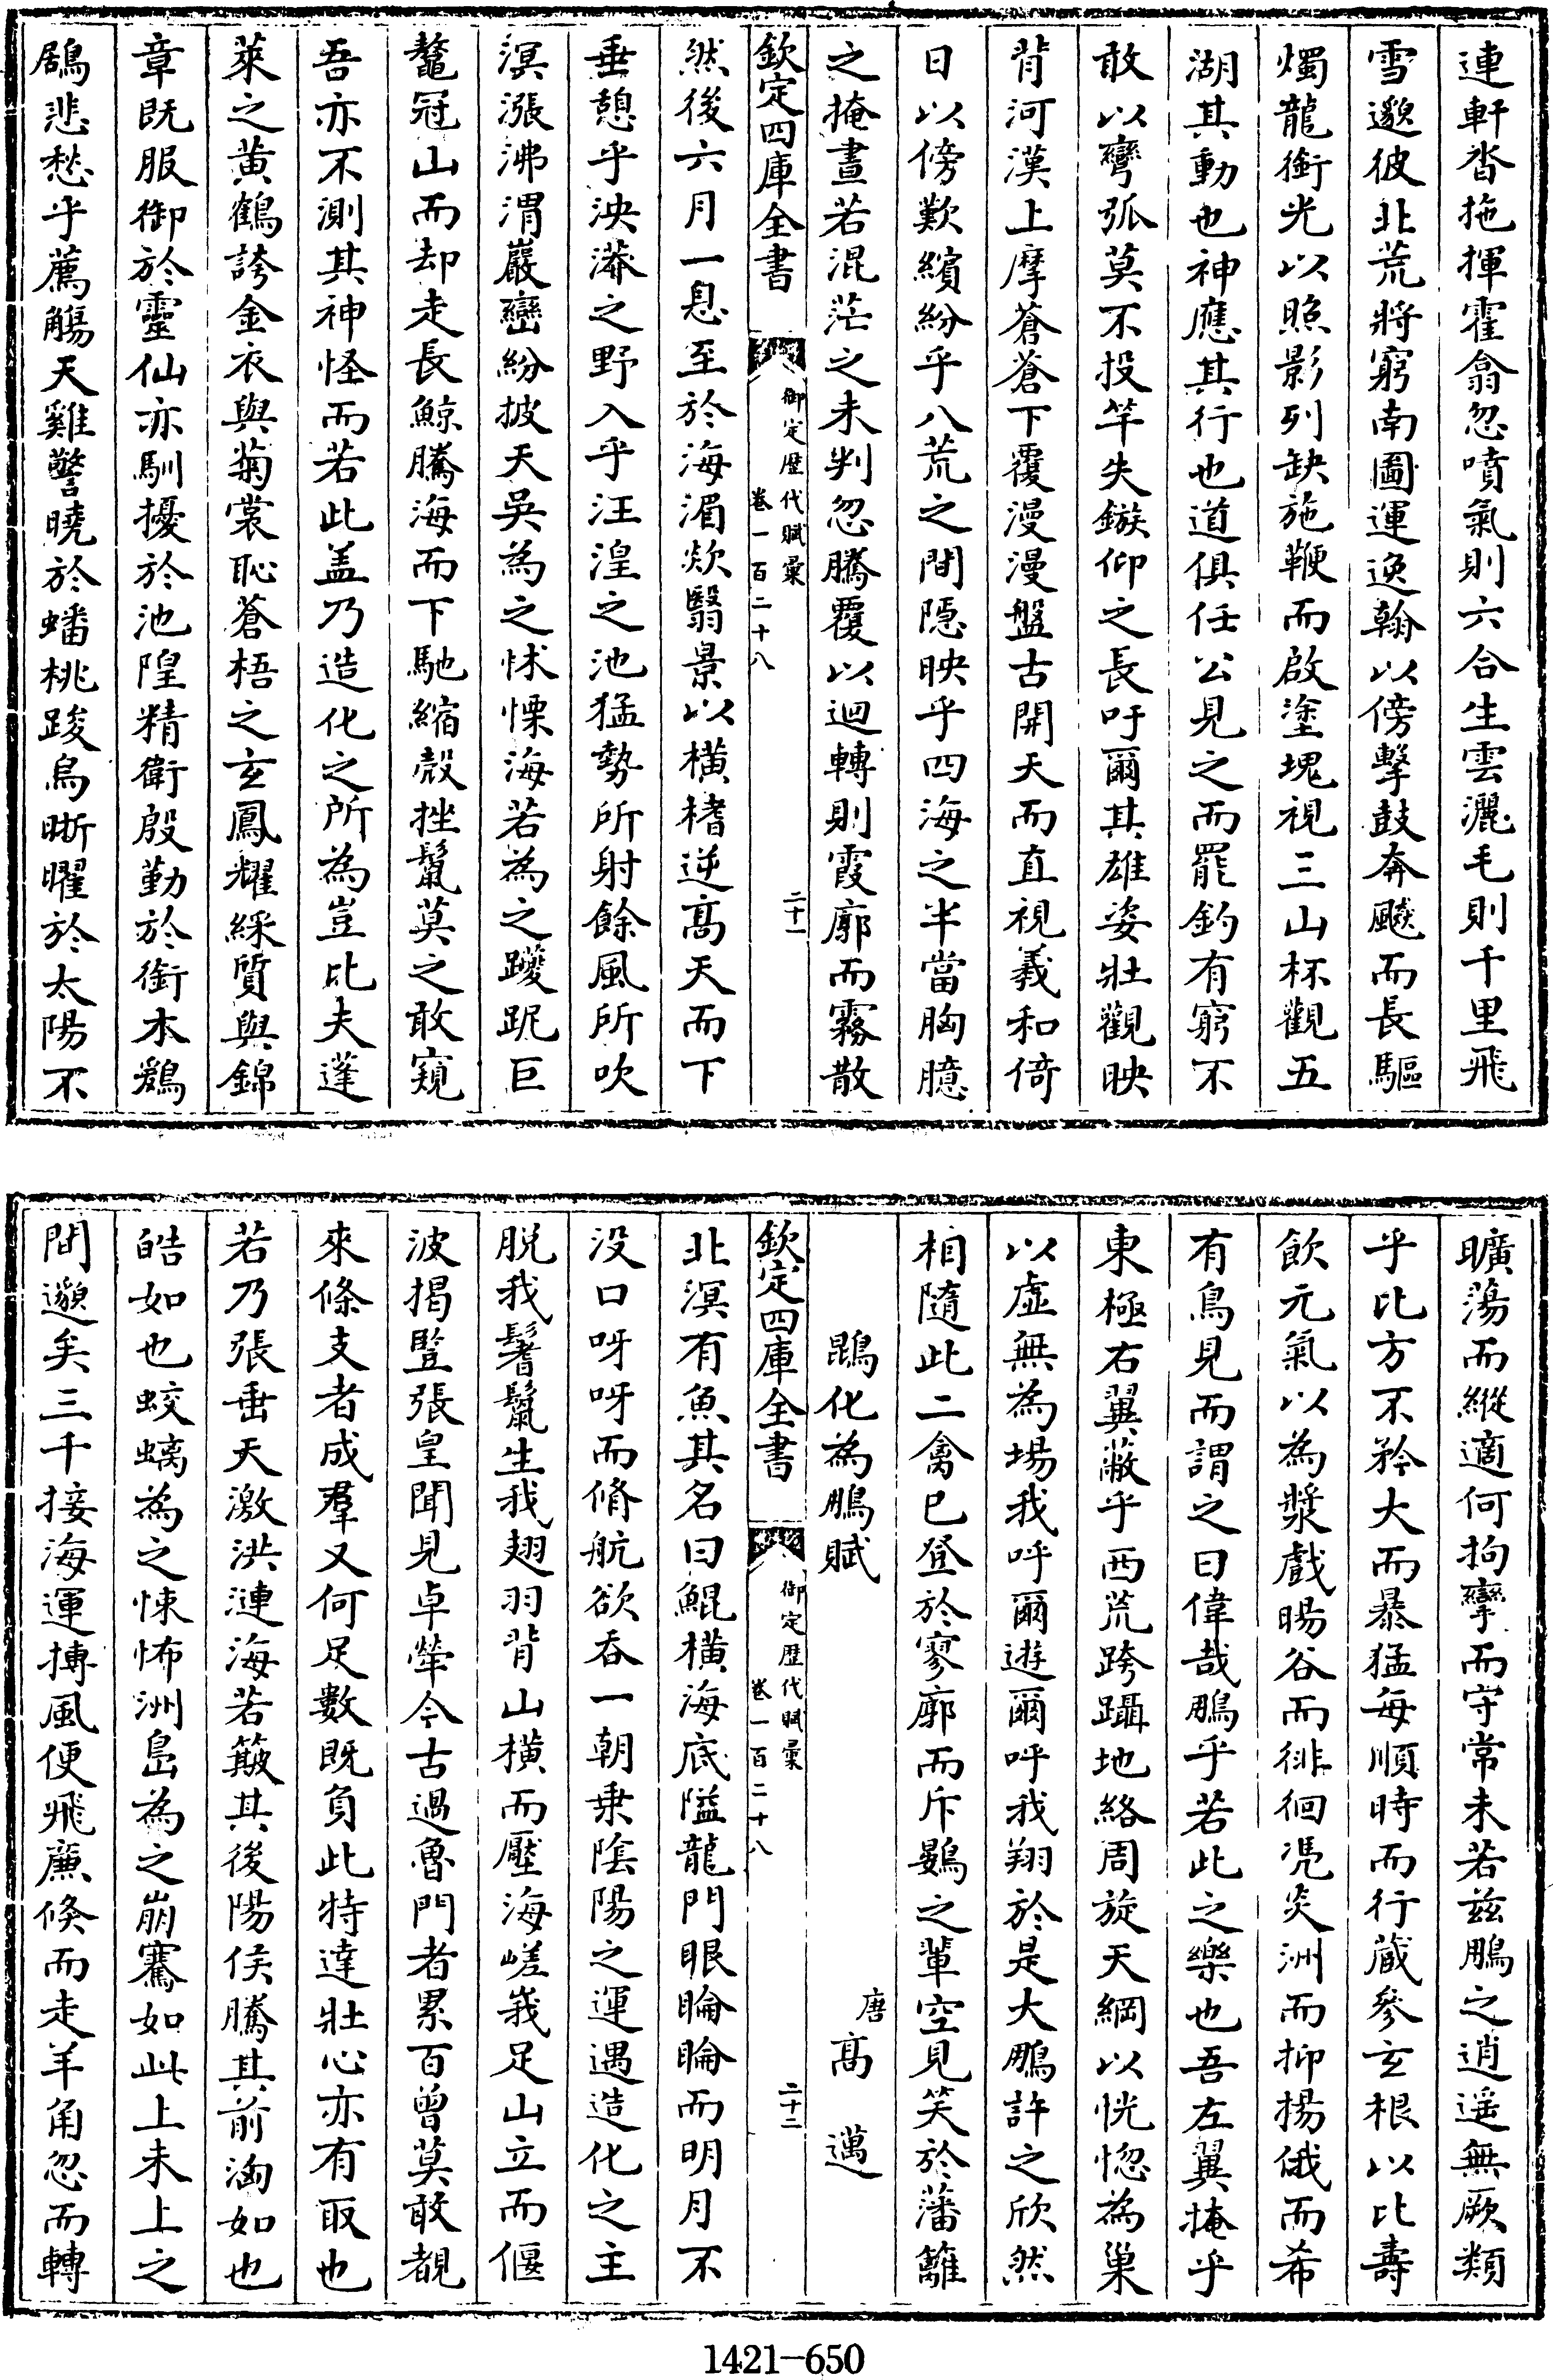 連軒沓拖揮霍翕忽噴氣則六合生雲灑毛則千里飛
雪邈彼北荒將窮南圖運逸翰以傍擊鼓奔飈而長驅
燭龍銜光以照影列缺施鞭而啟塗塊視三山杯觀五
湖其動也神應其行也道俱任公見之而罷釣有窮不
敢以彎弧莫不投竿失鏃仰之長吁爾其雄姿壯觀映
背河漢上摩蒼蒼下覆漫漫盤古開天而直視羲和倚
日以傍歎繽紛乎八荒之間隱映乎四海之半當胸臆
之掩晝若混茫之未判忽騰覆以迴轉則霞廓而霧散
欽定四庫全書
御定歷代賦彙
卷一百二十八
二十一
然後六月一息至於海湄欻翳景以橫楮逆高天而下
垂憩乎泱漭之野入乎汪湟之池猛勢所射餘風所吹
溟漲沸渭巖巒紛披天吳為之怵慄海若為之躨跜巨
鼇冠山而却走長鯨騰海而下馳縮殼挫鬣莫之敢窺
吾亦不測其神怪而若此盖乃造化之所為豈比夫蓬
萊之黃鶴誇金衣與菊裳恥蒼梧之玄鳳耀綵質與錦
章既服御於靈仙亦馴擾於池隍精衛殷勤於銜木鷄
鶋悲愁乎薦觴天雞警曉於蟠桃踆烏晣曜於太陽不
曠蕩而縱適何拘攣而守常未若兹鵬之逍遥無厥類
乎比方不矜大而暴猛每順時而行蔵參玄根以比壽
飲元氣以為漿戲暘谷而徘徊馮炎洲而抑揚俄而希
有鳥見而謂之曰偉哉鵬乎若此之樂也吾左翼掩乎
東極右翼蔽乎西荒跨躡地絡周旋天綱以恍惚為巢
以虛無為場我呼爾遊爾呼我翔於是大鵬許之欣然
相隨此二禽已登於寥廓而斥鷃之輩空見笑於藩籬
鵾化為鵬賦
唐
高邁
欽定四庫全書
御定歷代賦彙
卷一百二十八
二十二
北溟有魚其名曰鯤橫海底隘龍門眼睔睔而明月不
没口呀呀而脩航欲吞一朝乗陰陽之運遇造化之主
脱我鬐鬣生我翅羽背山橫而壓海嵯峩足山立而偃
波揭豎張皇聞見卓犖今古過魯門者累百曾莫敢覩
來條支者成羣又何足數既負此特達壯心亦有取也
若乃張垂天激洪漣海若簸其後陽侯騰其前洶如也
皓如也蛟螭為之悚怖洲島為之崩騫如此上未上之
間邈矣三千接海運摶風便飛廉倐而走羊角忽而轉
1421-650